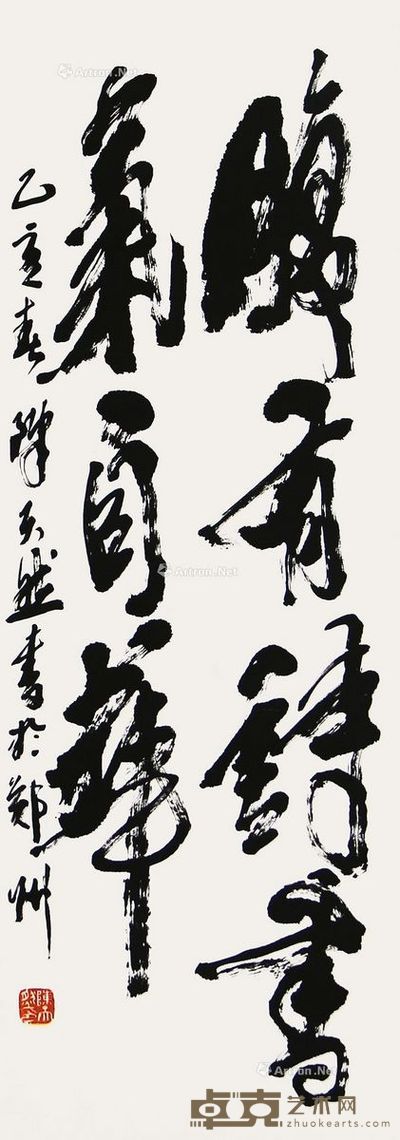 腹有诗書
氣自華
乙亥春 陳天然書於鄭州
Artron.Net
Artron.Net
Artron.Net
卓克艺术网
zhuokearts.com